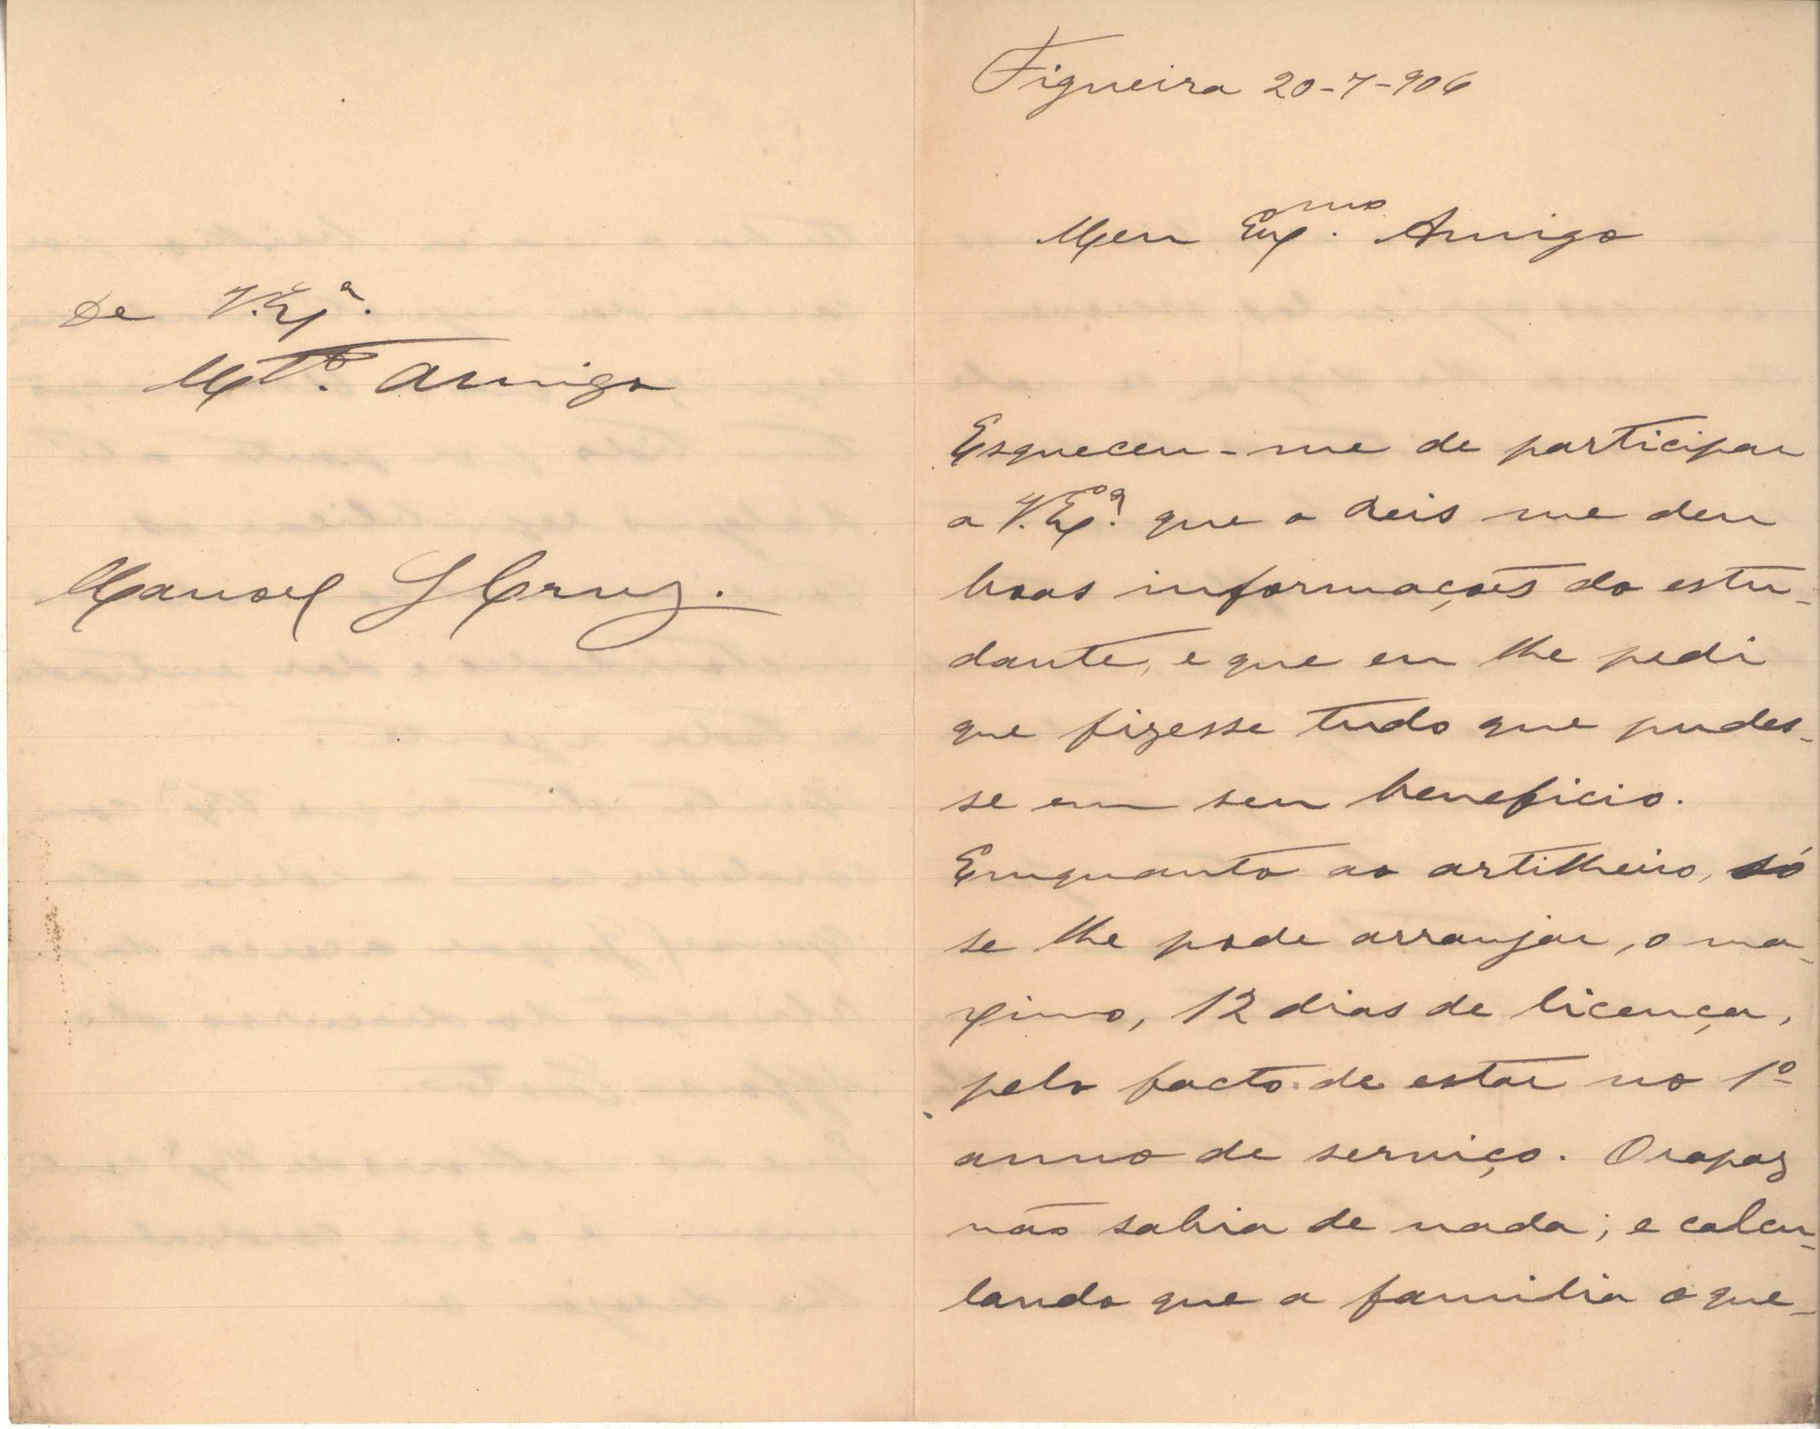 Figueira 20-7-906
Meu Exmo. Amigo
Esqueceu-me de participar
a V. Exª. que o Reis me deu
boas informações do estu-
dante, e que eu lhe pedi
que fizesse tudo que pudes-
se em seu beneficio.
Emquanto ao artilheiro, só
se lhe pode arranjar, o ma-
ximo, 12 dias de licença,
pelo facto de estar no 1º
anno de serviço. O rapaz
não sabia de nada; e calcu-
lando que a familia o que-
De V. Exª.
Mtº. Amigo
Manoel G Cruz.